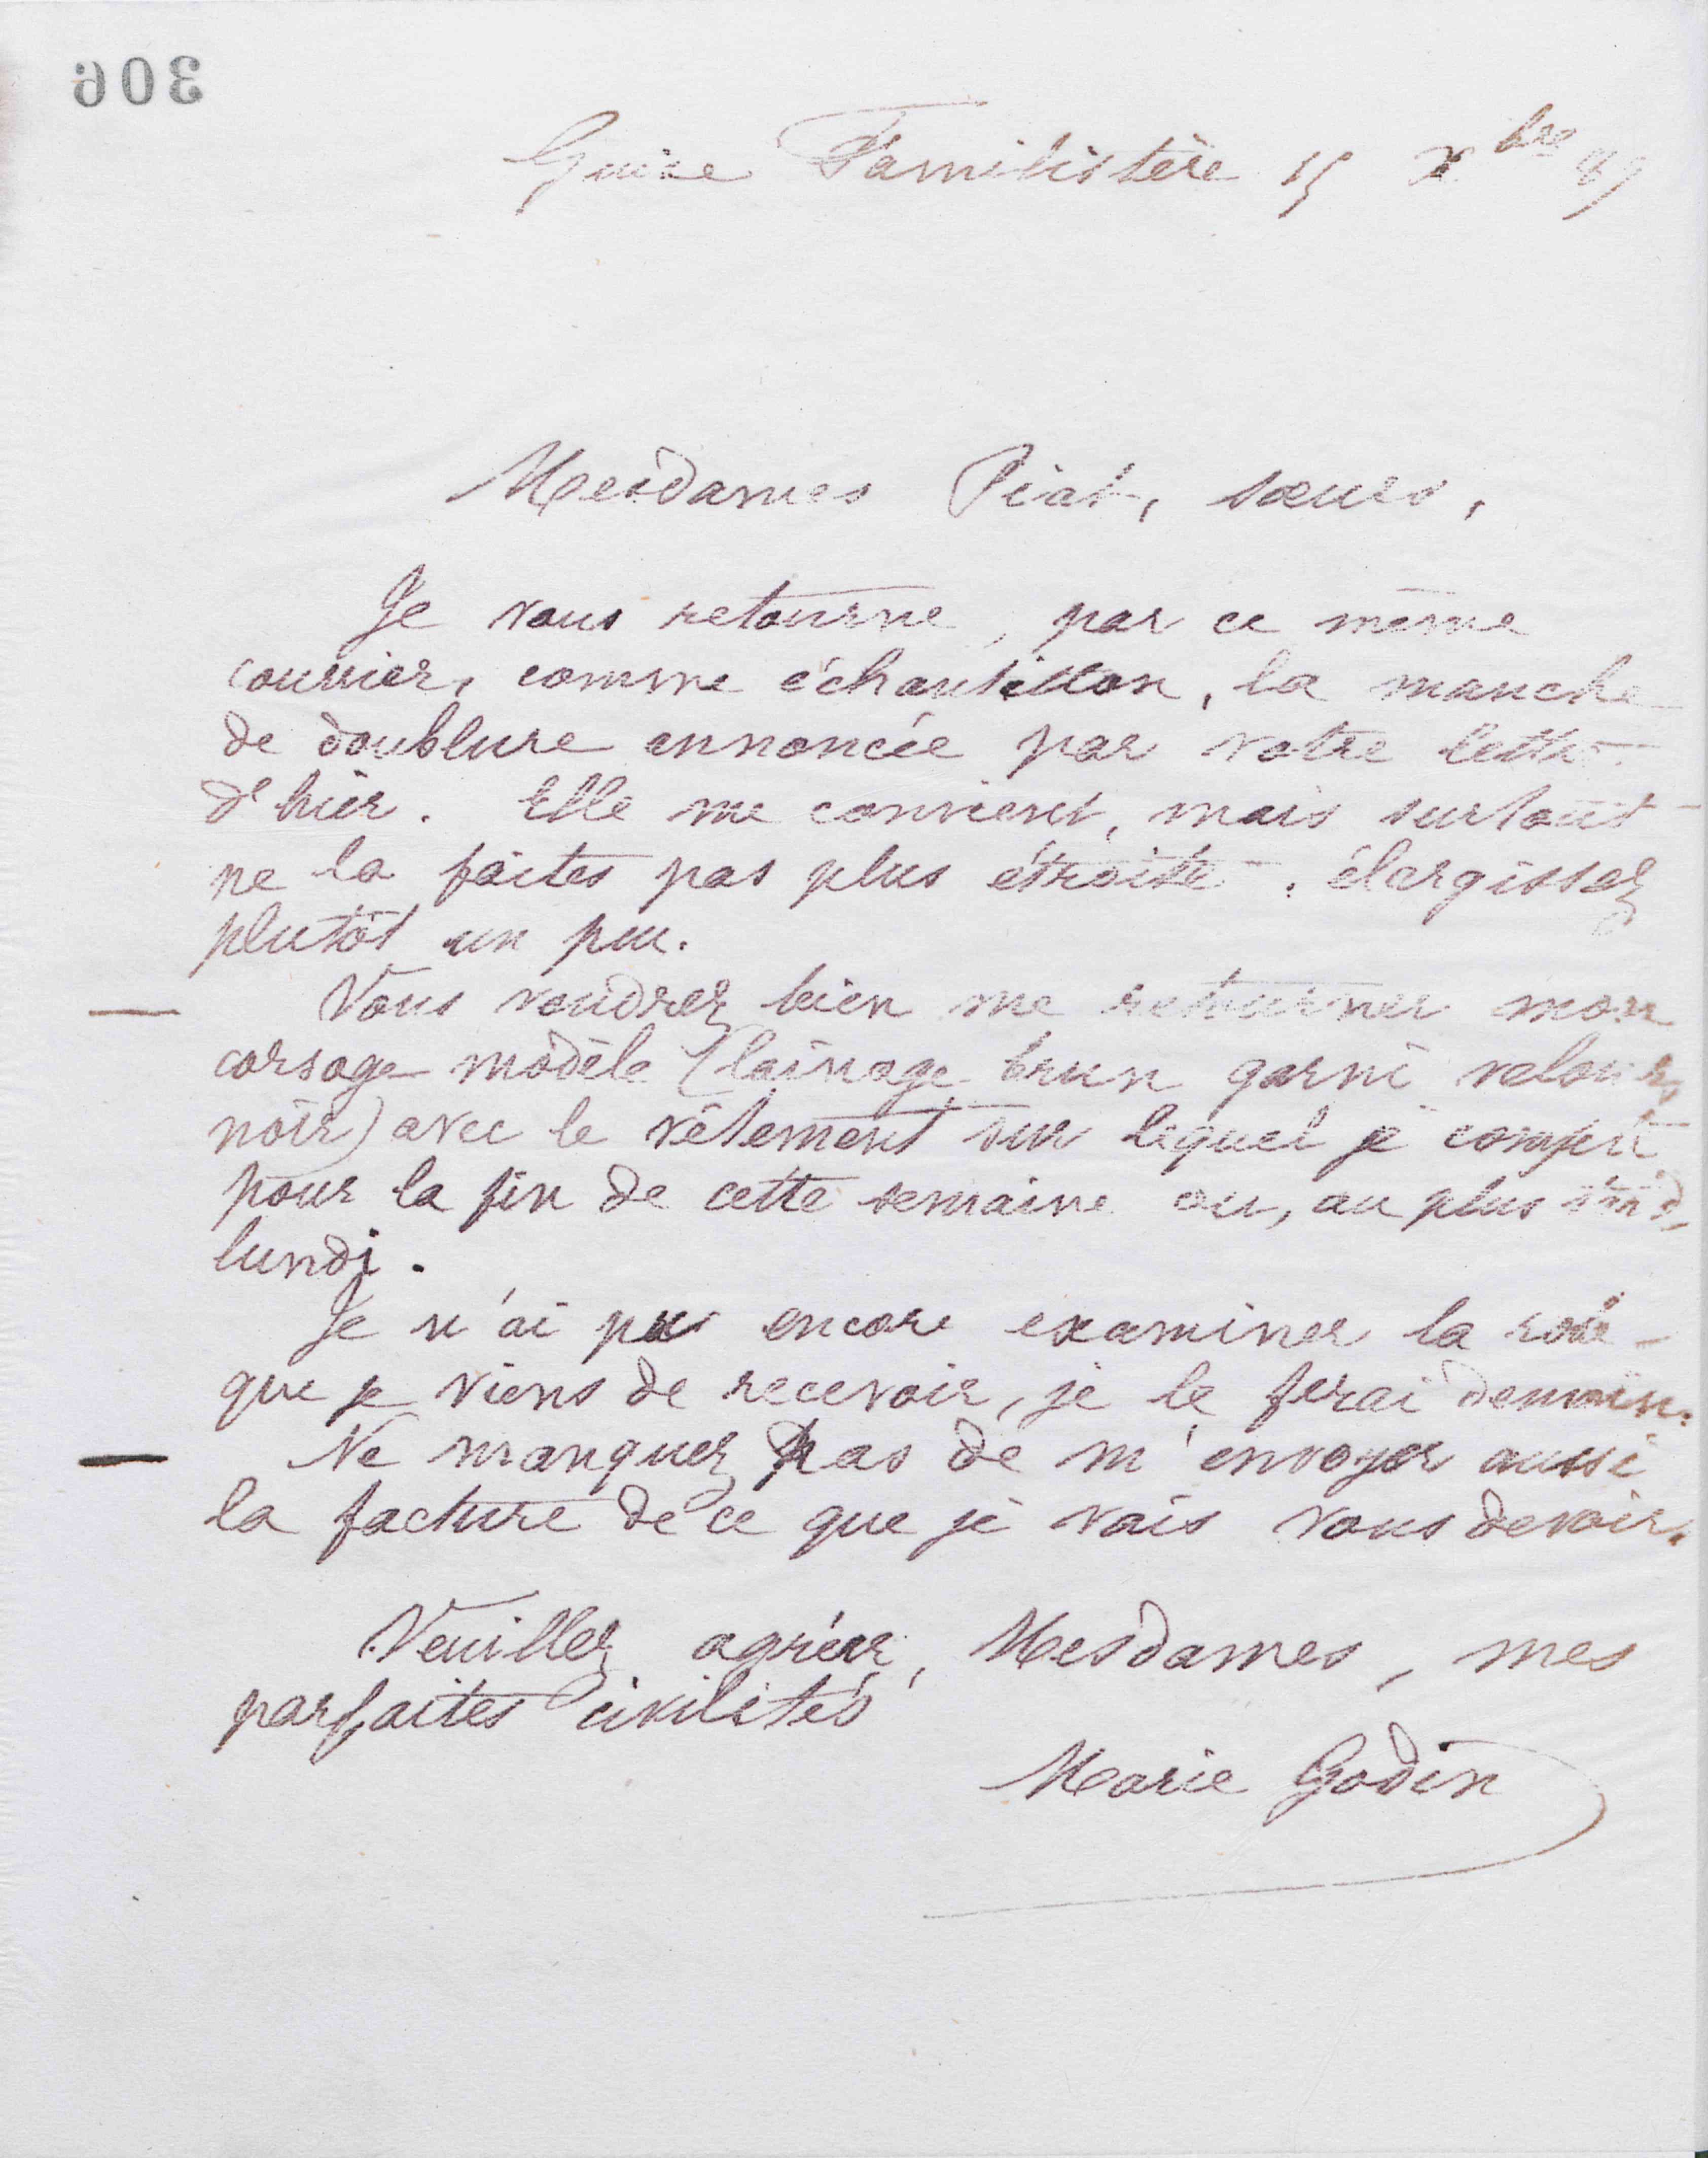 306
Guise Familistère 15 Xbre 87
Mesdames Piat, sœurs,
Je vous retourne, par ce même
courrier, comme échantillon, la manche
de doublure annoncée par votre lettre
d'hier. Elle me convient, mais surtout
ne la faites pas plus étroite : élargissez
plutôt un peu.
Vous voudrez bien me retourner mon
corsage modèle (lainage brun garni velours
noir) avec le vêtement sur lequel je compte
pour la fin de cette semaine ou, au plus tard,
lundi.
Je n'ai pu encore examiner la robe
que je viens de recevoir, je le ferai demain.
Ne manquez pas de m'envoyer aussi
la facture de ce que je vais vous devoir.
Veuillez agréer, Mesdames, mes
parfaites civilités
Marie Godin